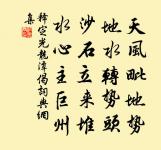 天風吡地勢
地水轉勢頭
沙石立来堆
水心主巨州
釋定光龍潭偈詞典網
集